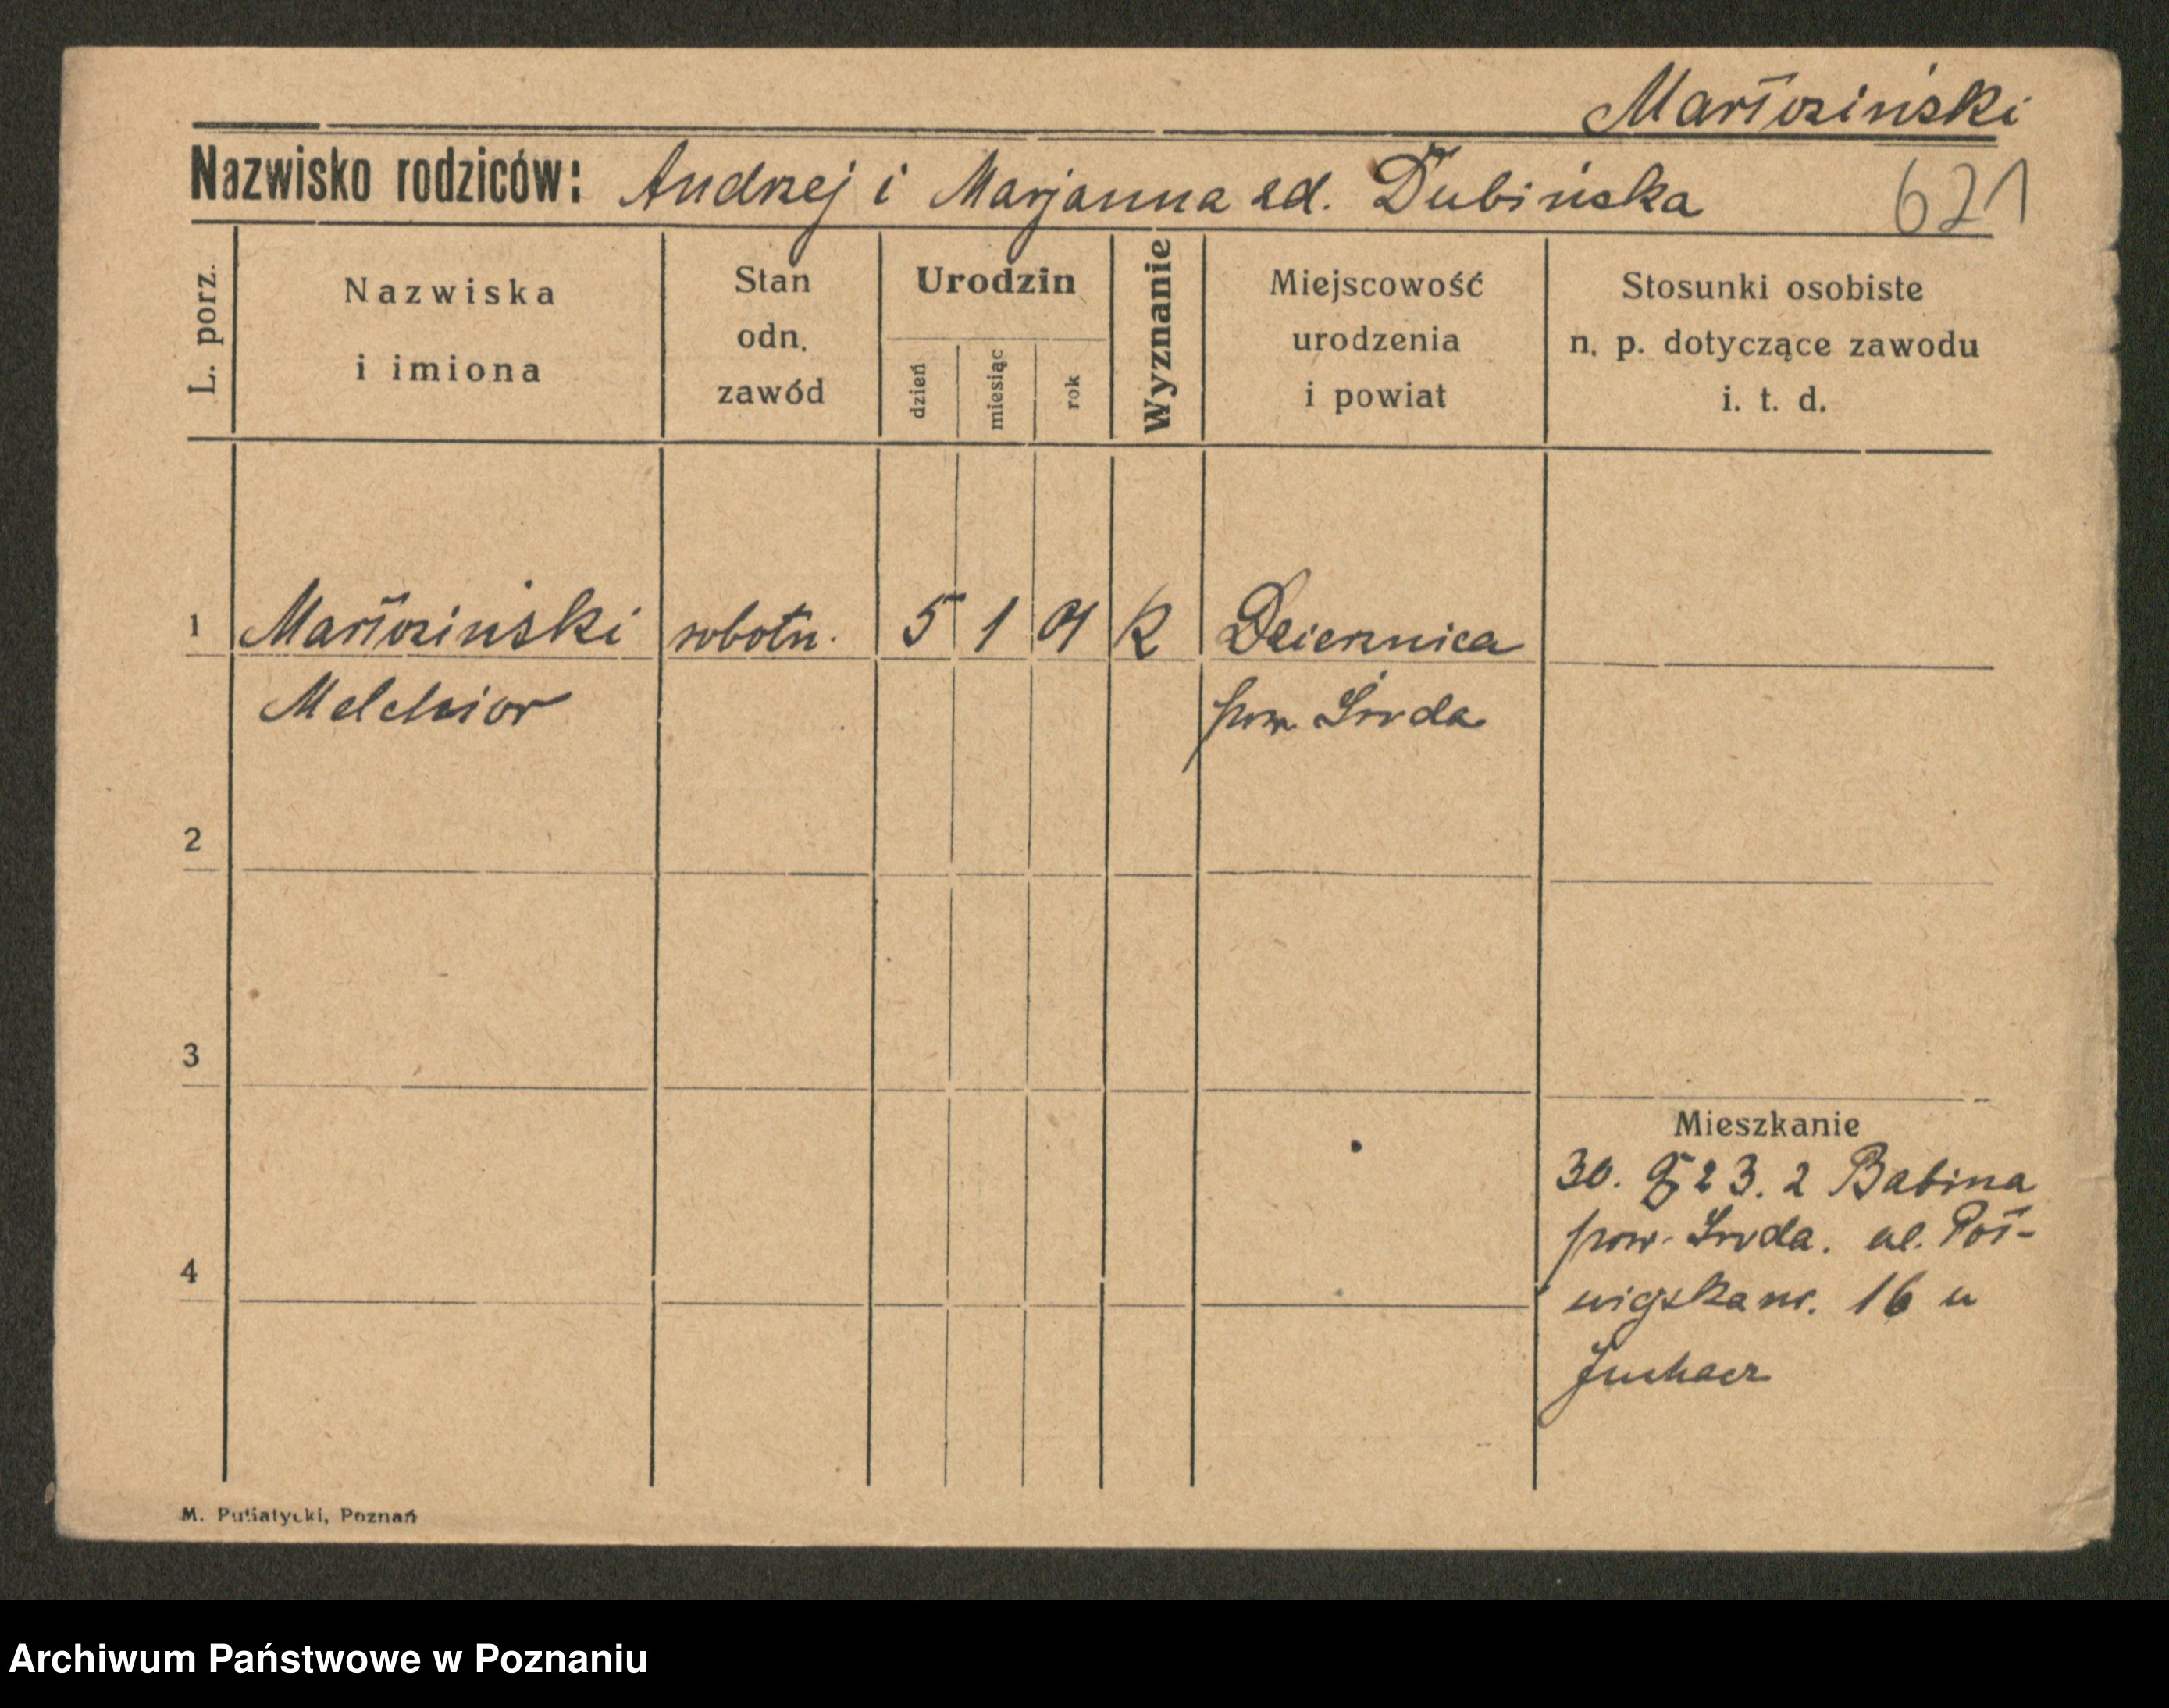 Marłoziński
Nazwisko rodziców: Andrzej i Marjanna zd. Dubińska 621
L. porz. Nazwiska i imiona Stan odn. zawód Urodzin dzień miesiąc rok Wyznanie Miejscowość urodzenia i powiat Stosunki osobiste n. p. dotyczące zawodu i. t. d.
1 robotn. 5 1 01 K Dziernica
Melchior pow. Środa
2
3
Mieszkanie
30. 23. z Babina
pow. Środa. ul. Pół-
4
wiejska nr. 16 u
M. Putiatycki, Poznań
Archiwum Państwowe w Poznaniu